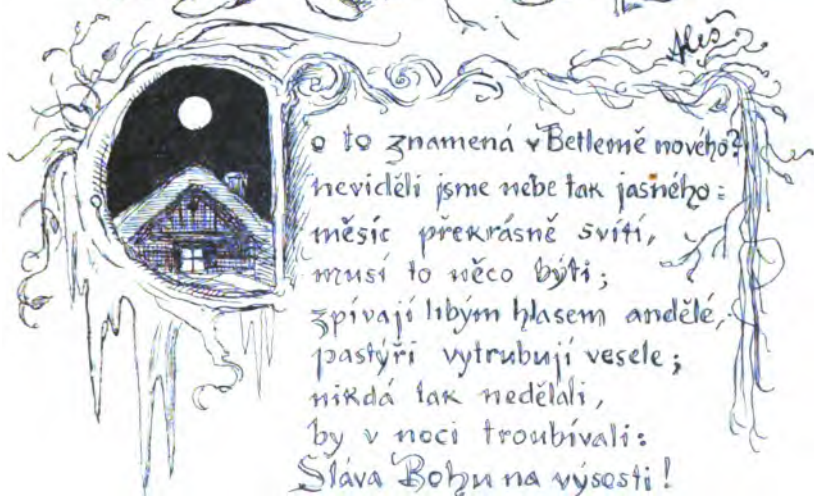 Aleš
Co to znamená v Betlemě nového?
neviděli jsme nebe tak jasného:
měsíc překrásně svítí,
musí to něco býti;
zpívají libým hlasem andělé,
pastýři vytrubují vesele;
nikdá tak nedělali,
by v noci troubívali:
Sláva Bohu na výsosti!